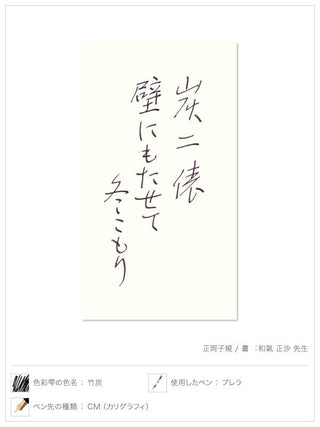 炭二俵
壁にもたせて
冬こもり
正岡子規 / 書 :和氣 正沙 先生
色彩雫の色名: 竹炭
使用したペン: プレラ
ペン先の種類: CM (カリグラフィ)